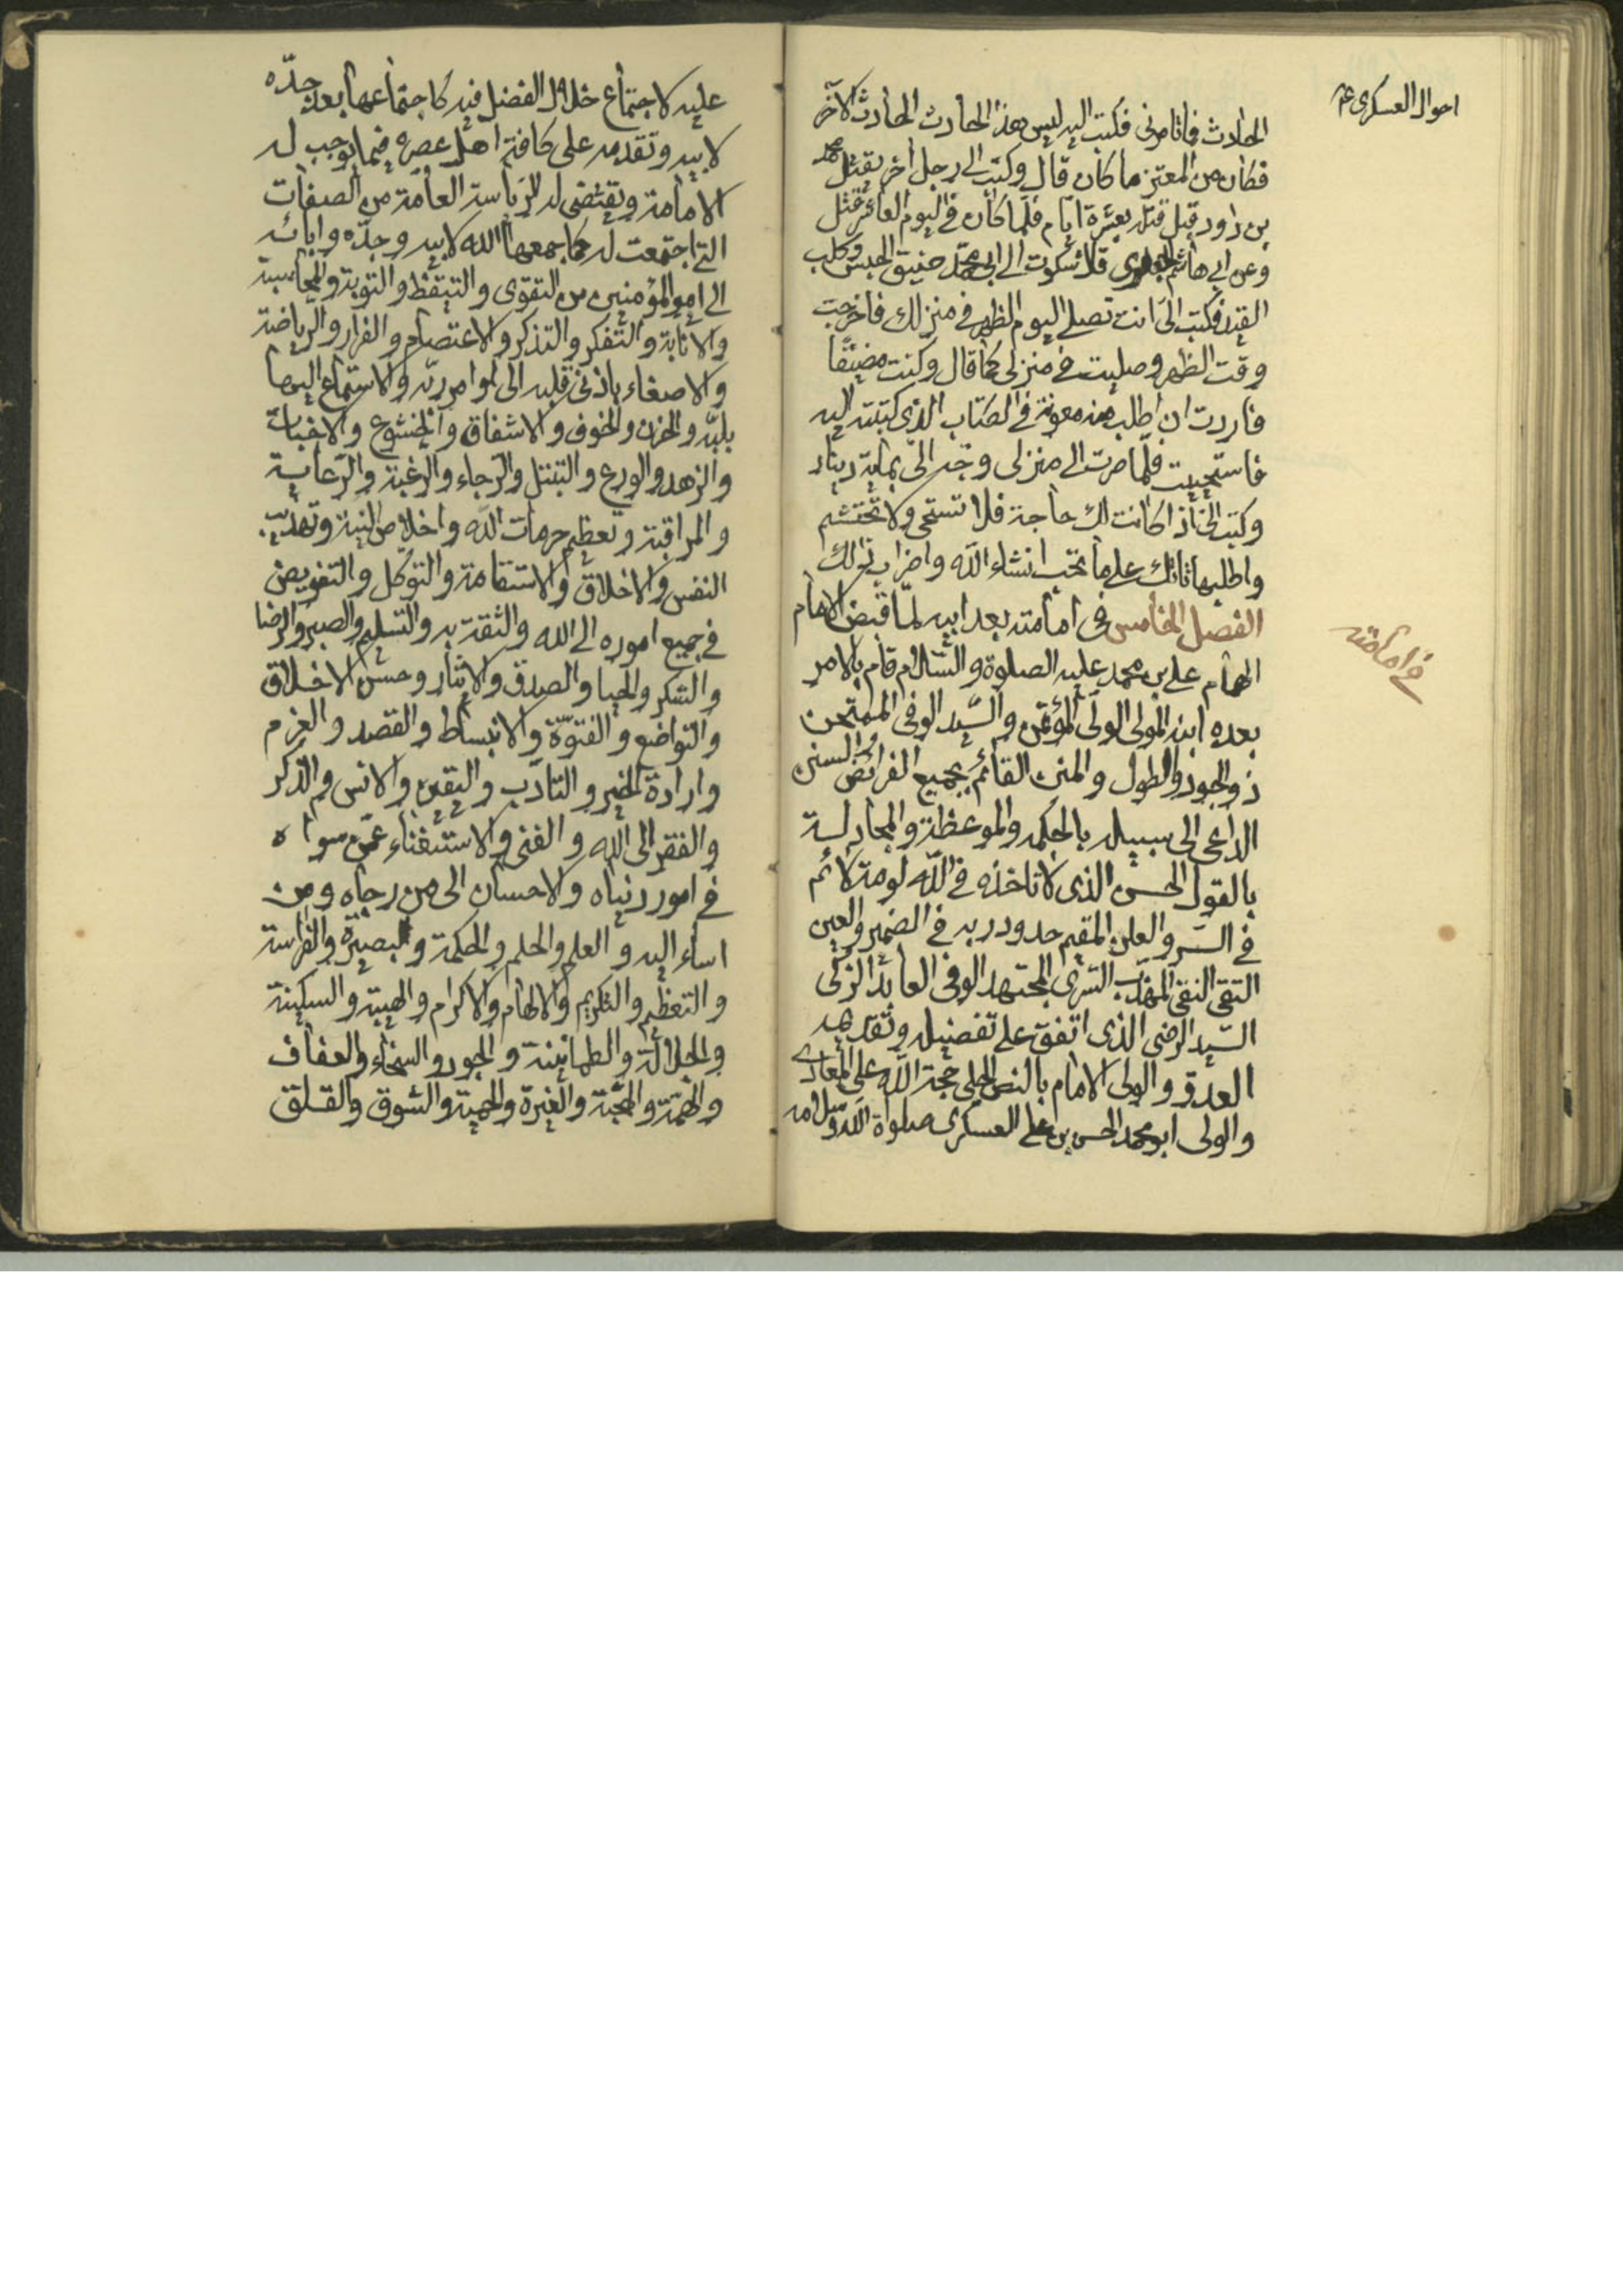 احوال العسكرى ع
الحادث فما تامرنى فكتب اليه ليس هذا الحادث الحادث الآخر
فكان من المعتز ما كان قال وكتب الى رجل اخر يقتل محمد
بن داود قبل قتله بعشرة ايام فلما كان فى اليوم العاشر قتل
وعن ابى هاشم الجعفرى قال شكوت الى ابى محمد ضيق الحبس وكلب
القيد فكتب الىّ انت تصلى اليوم الظهر فى منزلك فاخرجت
وقت الظهر وصليت فى منزلى كما قال وكنت مضيقا
فاردت ان اطلب منه معونة فى الكتاب الذى كتبته اليه
فاستحييت فلما صرت الى منزلى وجه الىّ بماية دينار
وكتب الىّ اذا كانت لك حاجة فلا تستحى ولا تحتشم
واطلبها تاتك على ما تحب انشاء الله واضراب ذلك
الفصل الخامس فى امامته بعد ابيه لمّا قبض الامام
فى امامته
الهمام على بن محمد عليه الصلوة والسّلام قام بالامر
بعده ابنه المولى الولى المؤتمن والسّيد الوفى الممتحن
ذو الجود والطول والمنن القائم بجميع الفرائض والسنن
الداعى الى سبيله بالحكمه والموعظة والمجادلة
بالقول الحسن الذى لا تاخذه فى اللّه لومة لائم
فى السّر والعلن المقيم حدود ربه فى الضمير والعين
التقى النقى المهذب السّرى المجتهد الوفى العابد الزكى
السّيد الرضى الذى اتفق على تفضيله وتقديمه
العدو والولى الامام بالنص الجلى حجة اللّه على المعادى
والولى ابو محمد الحسن بن على العسكرى صلواة اللّه وسلامه
عليه لاجتماع خلال الفضل فيه كاجتماعها بعد جدّه
لابيه وتقدمه على كافة اهل عصره فيما يوجب له
الامامة ويقتضى له الرياسة العامّة من الصفات
التى اجتمعت له كما جمعها الله لابيه وجدّه وابائه
الى امير المؤمنين من التقوى والتيقّظ والتوبة والمحاسبة
والانابة والتفكر والتذكر والاعتصام والفرار والرياضة
والاصغاء باذن قلبه الى اوامر ربّه والاستماع اليها
بلبّه والحزن والخوف والاشفاق والخشوع والاخبات
والزهد والورع والتبتل والرجاء والرغبة والرّعاية
والمراقبة وتعظيم حرمات اللّه واخلاص النية وتهذيب
النفس والاخلاق والاستقامة والتوكل والتفويض
فى جميع اموره الى الله والثقة به والتسليم والصبر والرضا
والشكر والحيا والصدق والايثار وحسن الاخلاق
والتواضع والفتوّة والانبساط والقصد والعزم
وارادة الخير والتادّب واليقين والانس والذكر
والفقر الى اللّه والغنى والاستغناء عمّن سواه
فى امور دنياه والاحسان الى من رجاه ومن
اساء اليه والعلم والحلم والحكمة والبصيرة والفراسة
والتعظيم والتكريم والالهام والاكرام والهيبة والسكينة
والجلالة والطمانينة والجود والسخاء والعفاف
والهمّة والمحبّة والغيرة والحمية والشوق والقلق